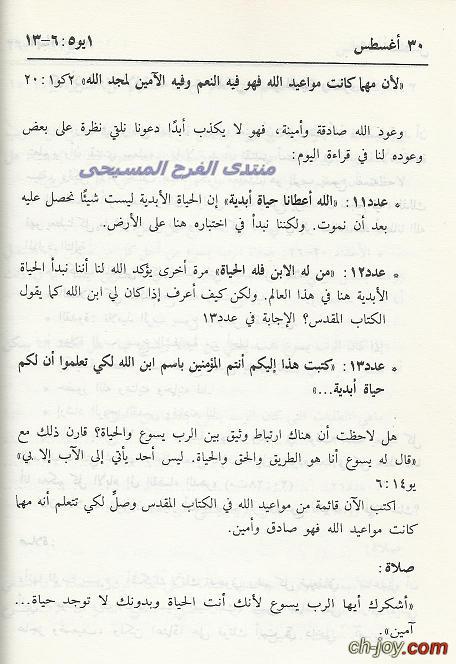 ٣٠ أغسطس
١يو٥: ٦-١٣
«لأن مهما كانت مواعيد الله فهو فيه النعم وفيه الآمين لمجد الله» ٢كو١: ٢٠
وعود الله صادقة وأمينة، فهو لا يكذب أبدًا دعونا نلقي نظرة على بعض
وعوده لنا في قراءة اليوم:
منتدى الفرح المسيحى
* عدد١١: «الله أعطانا حياة أبدية» إن الحياة الأبدية ليست شيئًا نحصل عليه
بعد أن نموت. ولكننا نبدأ في اختباره هنا على الأرض.
* عدد١٢: «من له الابن فله الحياة» مرة أخرى يؤكد الله لنا أننا نبدأ الحياة
الأبدية هنا في هذا العالم. ولكن كيف أعرف إذا كان لي ابن الله كما يقول
الكتاب المقدس؟ الإجابة في عدد١٣
* عدد١٣: «كتبت هذا إليكم أنتم المؤمنين باسم ابن الله لكي تعلموا أن لكم
حياة أبدية...»
هل لاحظت أن هناك ارتباط وثيق بين الرب يسوع والحياة؟ قارن ذلك مع
«قال له يسوع أنا هو الطريق والحق والحياة. ليس أحد يأتي إلى الآب إلا بي»
يو١٤: ٦
اكتب الآن قائمة من مواعيد الله في الكتاب المقدس وصلِّ لكي تتعلم أنه مهما
كانت مواعيد الله فهو صادق وأمين.
صلاة:
«أشكرك أيها الرب يسوع لأنك أنت الحياة وبدونك لا توجد حياة...
آمين».
ch-joy.com